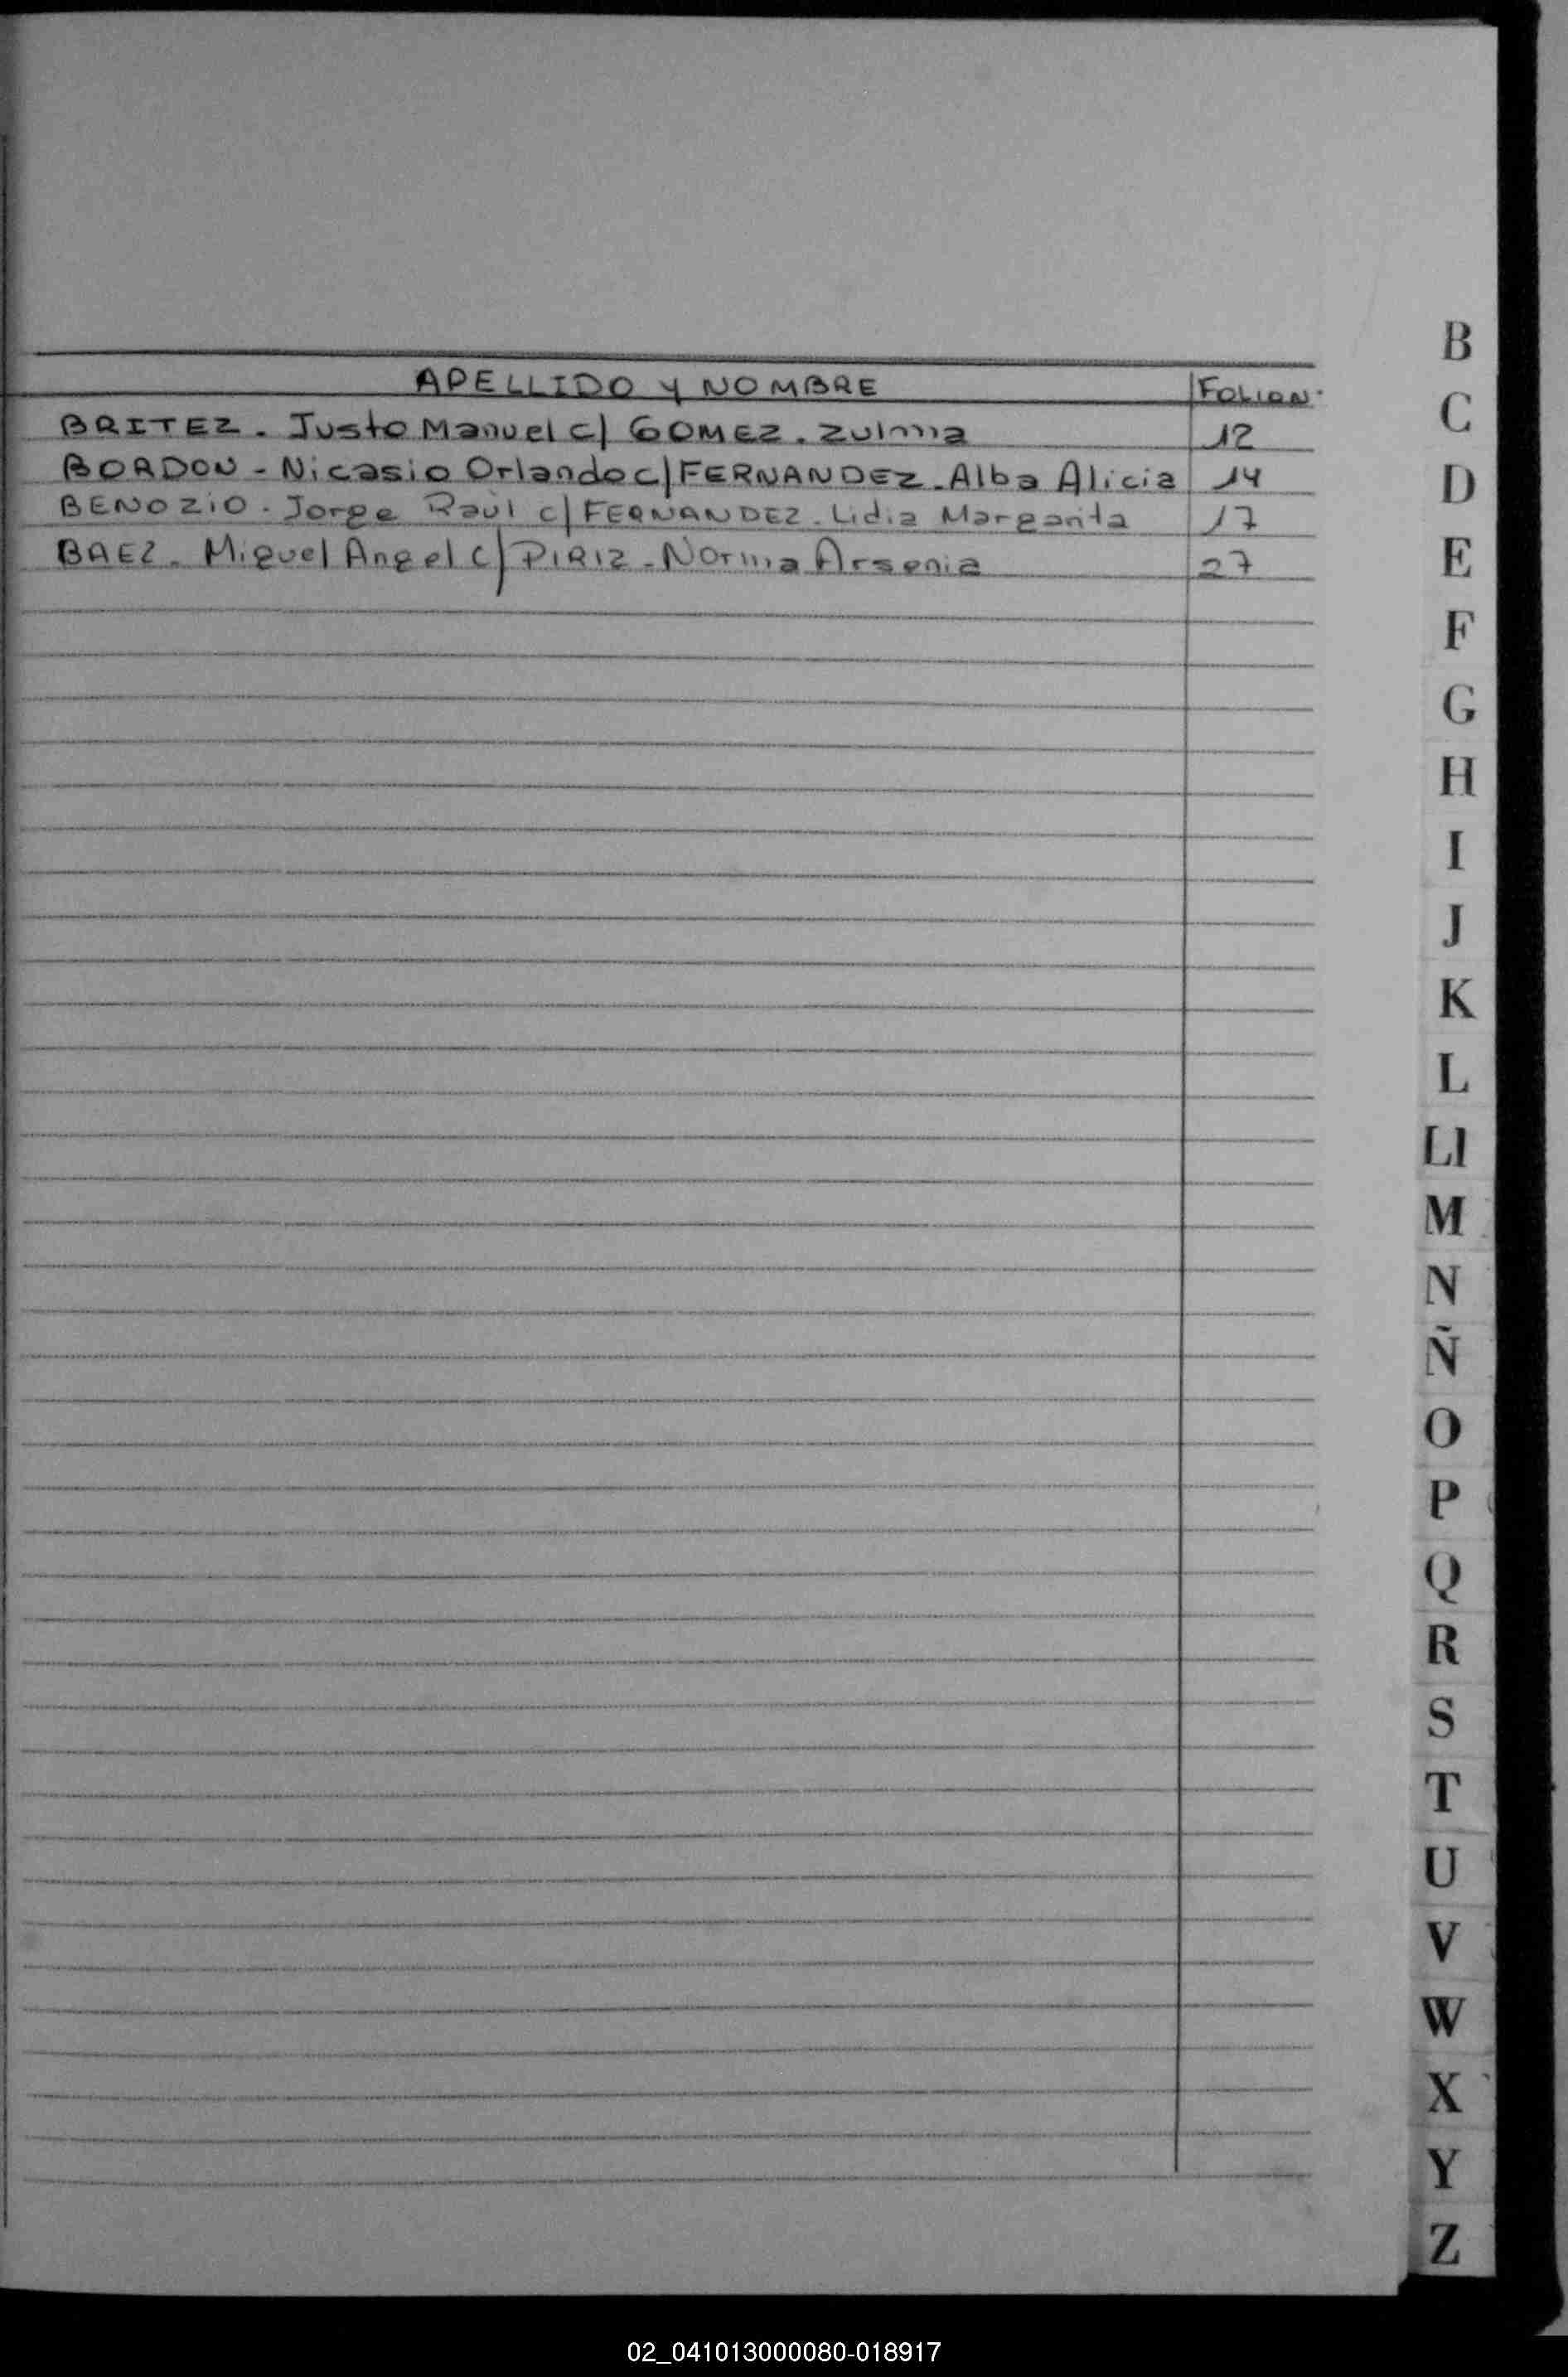 APELLIDO Y NOMBRE FOLION.
BRITEZ. Justo Manuel c/ GOMEZ. Zulma 12
BORDON - Nicasio Orlando c/ FERNANDEZ. Alba Alicia 14
BENOZIO. Jorge Raùl c/ FERNANDEZ. Lidia Margarita 17
BAEZ. Miguel Angel c/ PIRIZ. Norma Arsenia 27
B
C
D
E
F
G
H
I
J
K
L
Ll
M
N
Ñ
O
P
Q
R
S
T
U
V
W
X
Y
Z
02_041013000080-018917